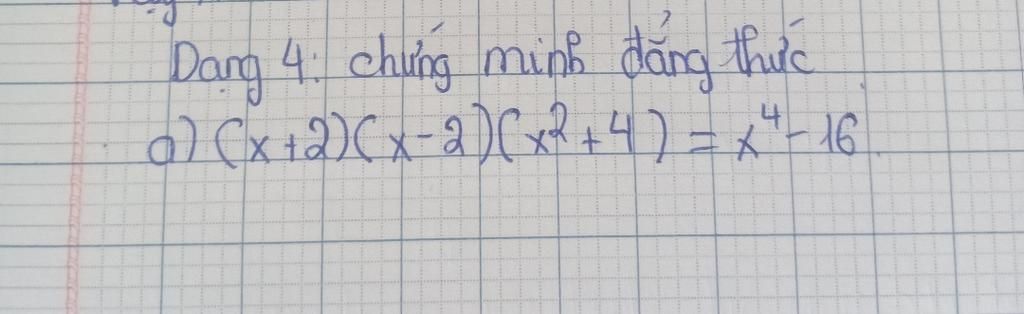 Dạng 4: chứng minh đẳng thức
a) (x+2)(x-2)(x²+4) = x⁴-16